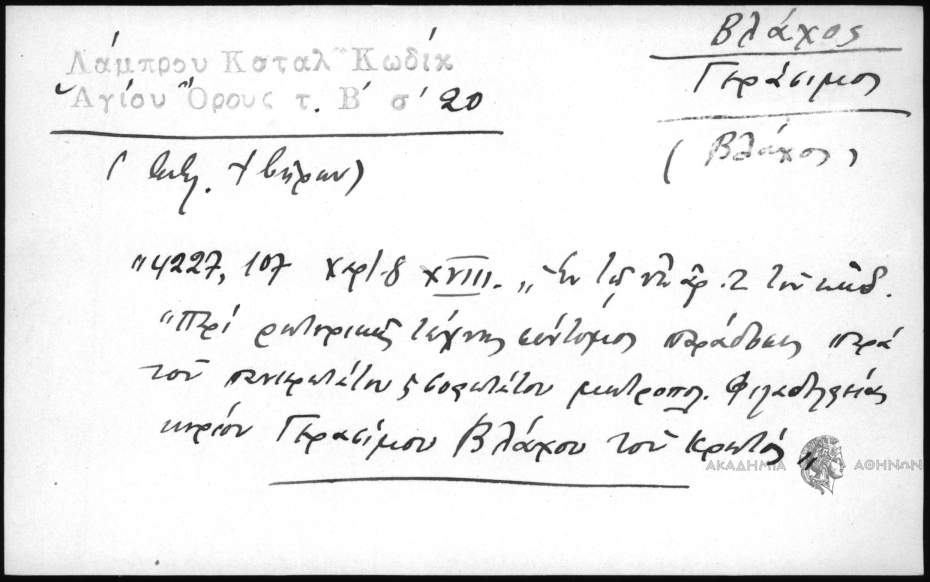 Λάμπρου Καταλ Κωδίκ
Ἁγίου Ὄρους τ. Β' σ' 20
Βλάχος
Γεράσιμος
(Βλάχος)
(Ἰβήρων)
"4227, 107 XVIII. "Ἐν τῷ ὑπ' ἀρ. 2 τοῦ κώδ.
"Περὶ ρητορικῆς τέχνης σύντομος παράδοσις παρὰ
τοῦ πανιερωτάτου ϗ σοφωτάτου μητροπολ. Φιλαδελφείας
κυρίου Γερασίμου Βλάχου τοῦ Κρητός"
ΑΚΑΔΗΜΙΑ ΑΘΗΝΩΝ